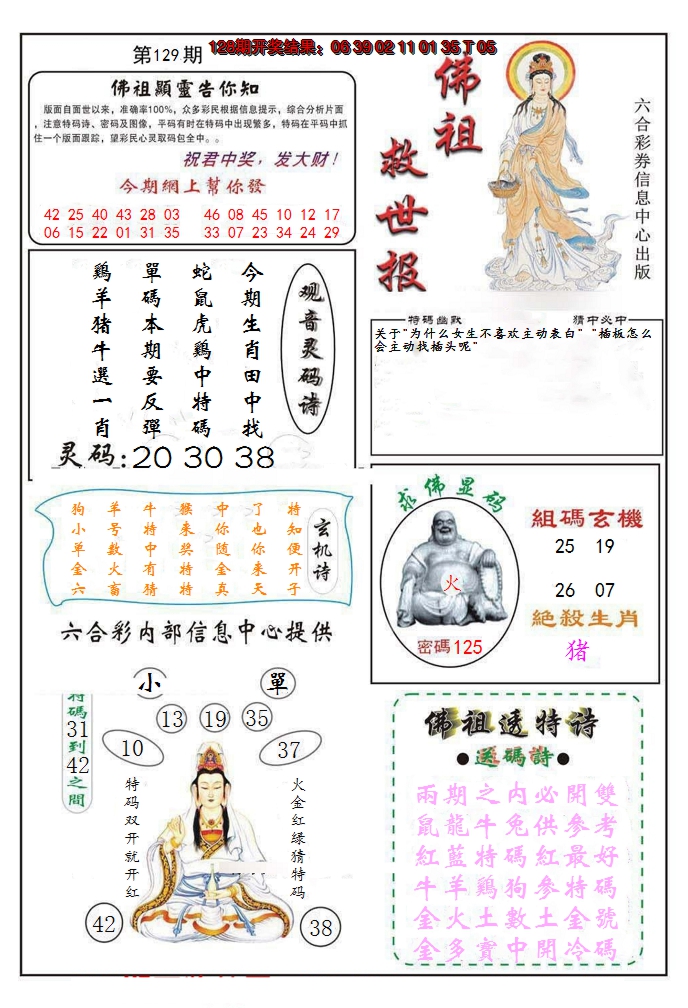 第129期
128期开奖结果：06 39 02 11 01 35 T 05
佛祖顯靈告你知
版面自面世以来，准确率100%，众多彩民根据信息提示，综合分析片面
，注意特码诗、密码及图像，平码有时在特码中出现繁多，特码在平码中抓
住一个版面跟踪，望彩民心灵取码包全中。。
祝君中奖，发大财！
今期網上幫你發
42 25 40 43 28 03 46 08 45 10 12 17
06 15 22 01 31 35 33 07 23 34 24 29
佛祖
救世报
六合彩券信息中心出版
观音灵码诗
今期生肖田中找
蛇鼠虎鷄中特碼
單碼本期要反彈
鷄羊猪牛選一肖
灵码:20 30 38
特碼幽默
猜中必中
关于"为什么女生不喜欢主动表白" "插板怎么
会主动找插头呢"
玄机诗
特知便开子
了也你来天
中你随金真
猴来奖特特
牛特中有猜
羊号数火畜
狗小单金六
六合彩内部信息中心提供
求佛显码
火
密碼125
組碼玄機
25 19
26 07
絶殺生肖
猪
小
單
特碼31到42之間
13 19 35
10
37
特码双开就开红
火金红绿猜特码
42
38
佛祖透特诗
送碼詩
兩期之内必開雙
鼠龍牛兔供參考
紅藍特碼紅最好
牛羊鷄狗參特碼
金火土數土金號
金多實中開冷碼